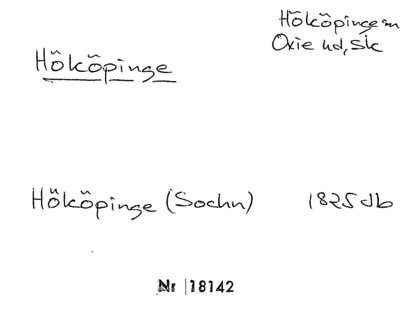 Hököpinge sn
Oxie hd, Sk
Hököpinge
Hököpinge (Sochn) 1825 db
Nr 18142